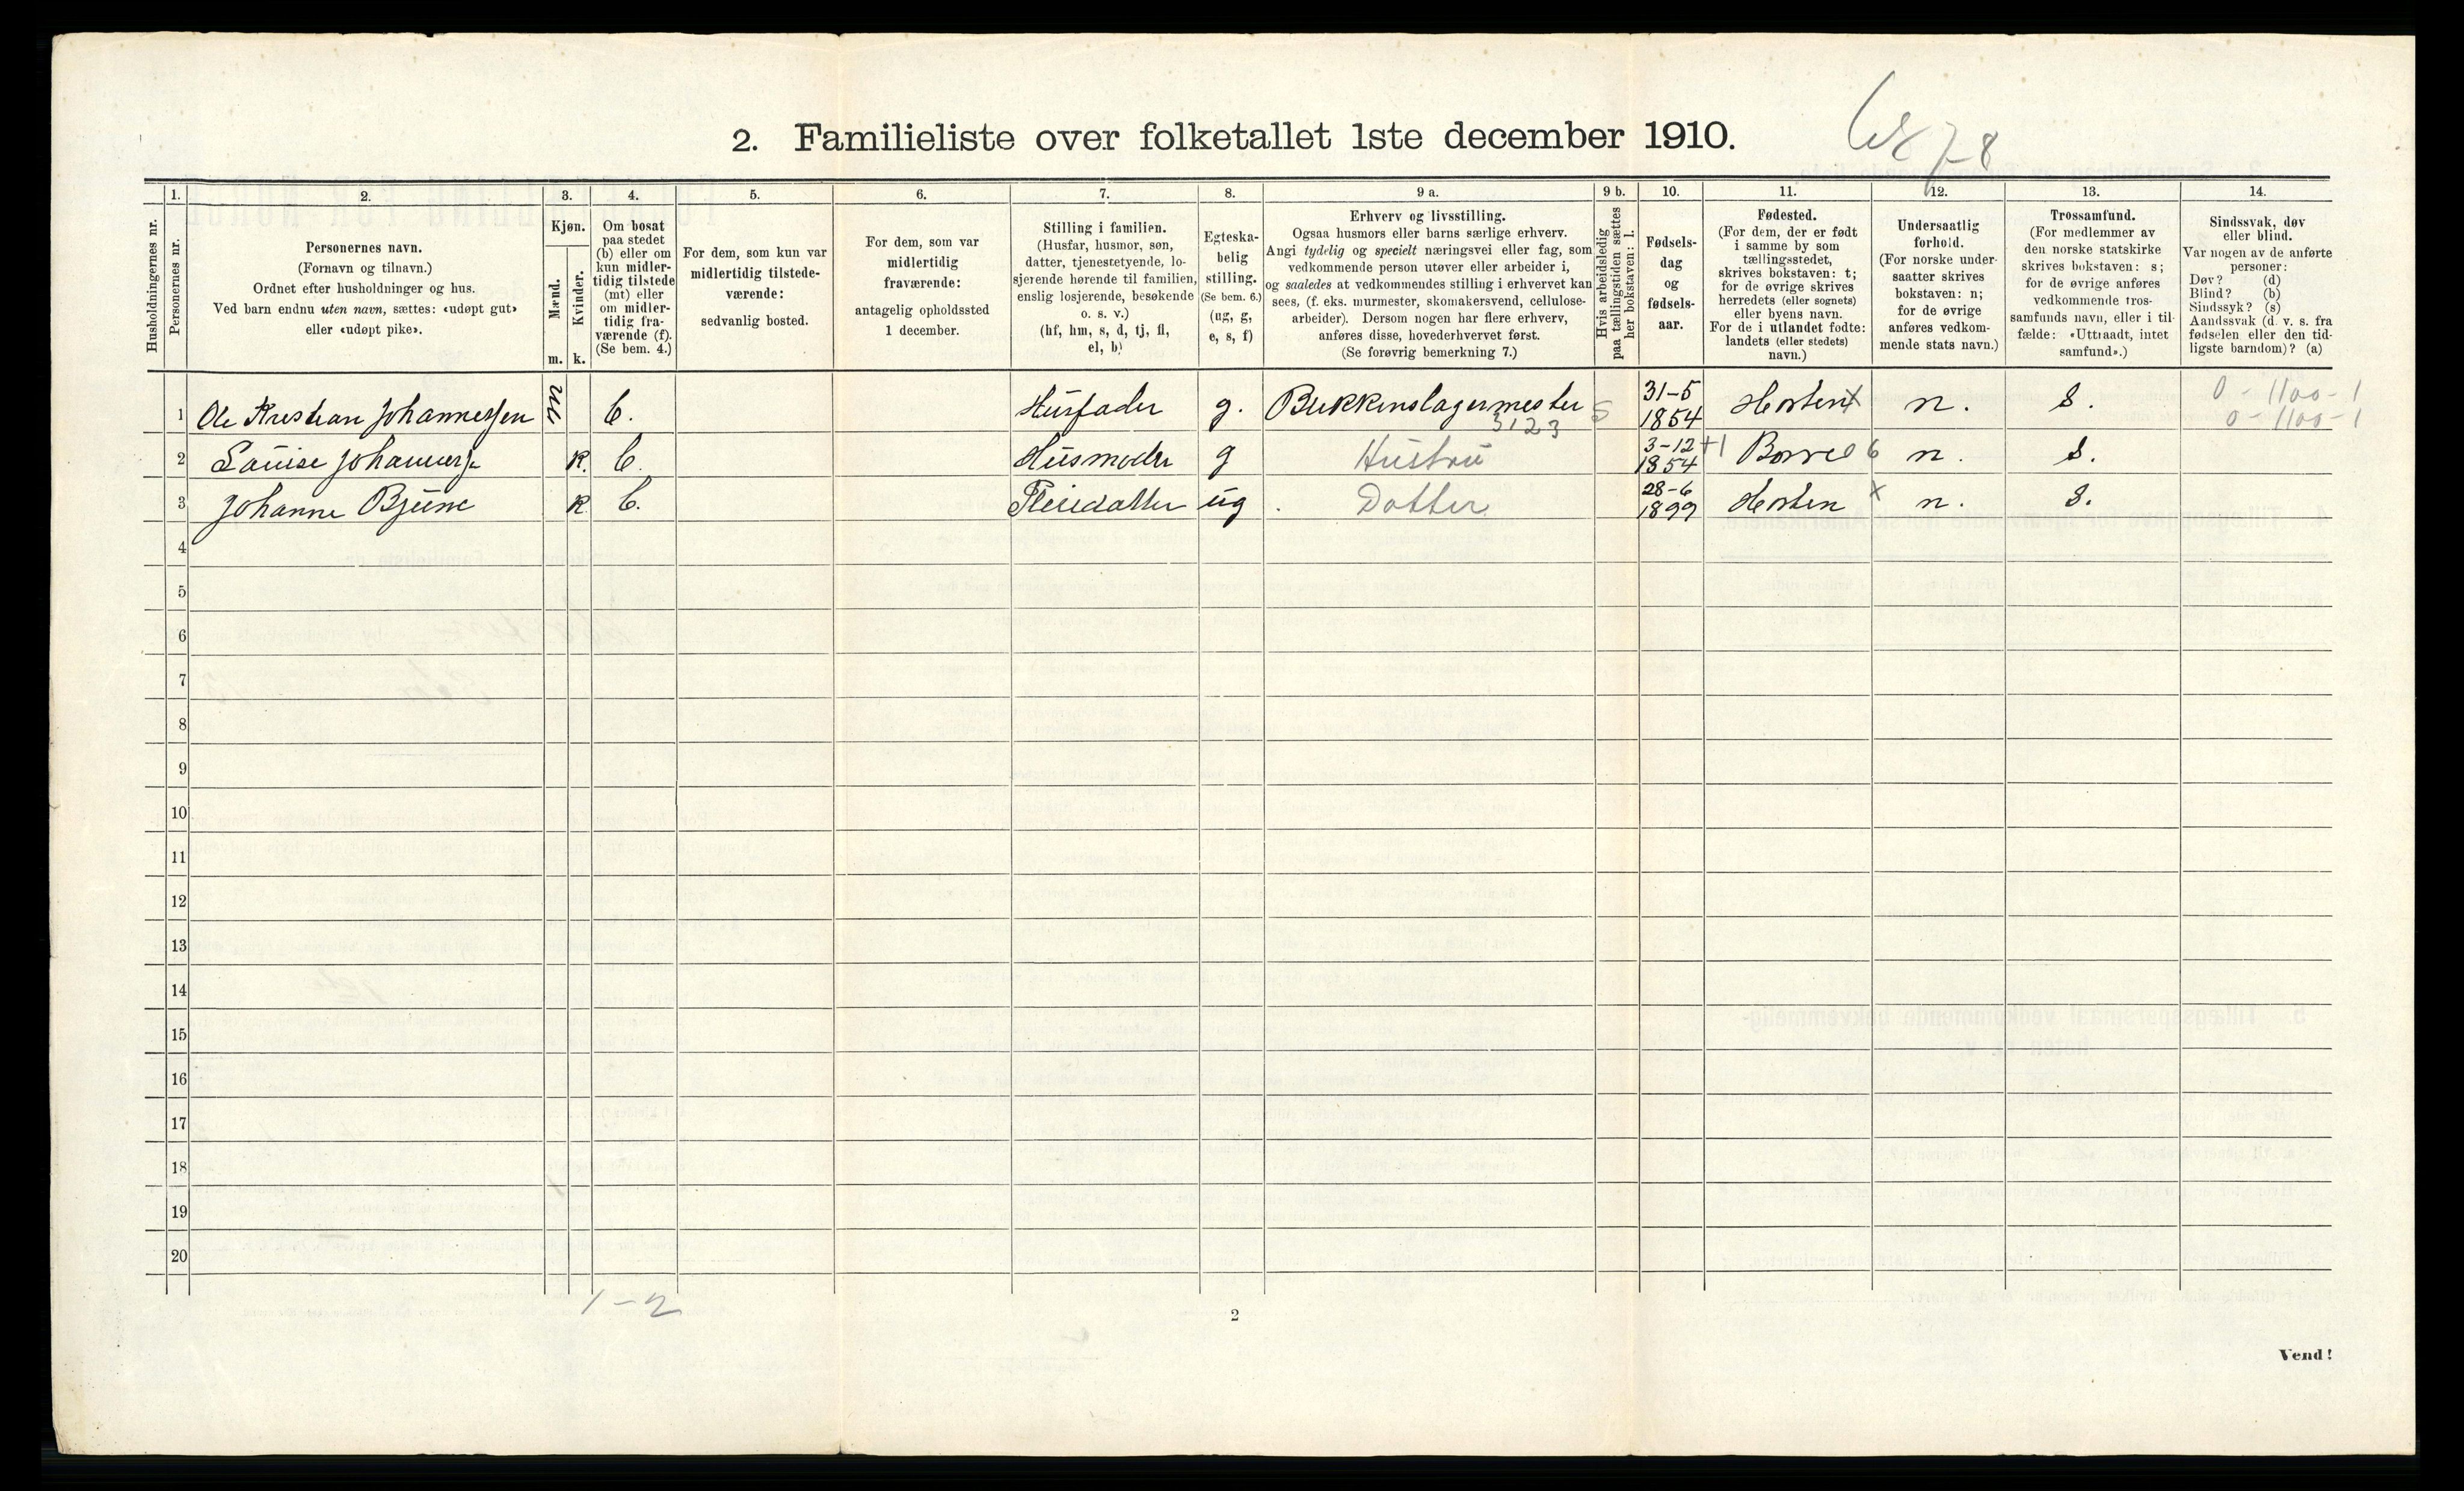 2. Familieliste over folketallet 1ste december 1910.
1. 2. 3. 4. 5. 6. 7. 8. 9 a. 9 b. 10. 11. 12. 13. 14.
Husholdningernes nr.
Personernes nr.
Personernes navn.
(Fornavn og tilnavn.)
Ordnet efter husholdninger og hus.
Ved barn endnu uten navn, sættes: «udøpt gut»
eller «udøpt pike».
Kjøn.
Mænd.
Kvinder.
m. k.
Om bosat
paa stedet
(b) eller om
kun midler-
tidig tilstede
(mt) eller
om midler-
tidig fra-
værende (f).
(Se bem. 4.)
For dem, som kun var
midlertidig tilstede-
værende:
sedvanlig bosted.
For dem, som var
midlertidig
fraværende:
antagelig opholdssted
1 december.
Stilling i familien.
(Husfar, husmor, søn,
datter, tjenestetyende, lo-
sjerende hørende til familien,
enslig losjerende, besøkende
o. s. v.)
(hf, hm, s, d, tj, fl,
el, b)
Egteska-
belig
stilling.
(Se bem. 6.)
(ug, g,
e, s, f)
Erhverv og livsstilling.
Ogsaa husmors eller barns særlige erhverv.
Angi tydelig og specielt næringsvei eller fag, som
vedkommende person utøver eller arbeider i,
og saaledes at vedkommendes stilling i erhvervet kan
sees, (f. eks. murmester, skomakersvend, cellulose-
arbeider). Dersom nogen har flere erhverv,
anføres disse, hovederhvervet først.
(Se forøvrig bemerkning 7.)
Hvis arbeidsledig
paa tællingstiden sættes
her bokstaven: l.
Fødsels-
dag
og
fødsels-
aar.
Fødested.
(For dem, der er født
i samme by som
tællingsstedet,
skrives bokstaven: t;
for de øvrige skrives
herredets (eller sognets)
eller byens navn.
For de i utlandet fødte:
landets (eller stedets)
navn.)
Undersaatlig
forhold.
(For norske under-
saatter skrives
bokstaven: n;
for de øvrige
anføres vedkom-
mende stats navn.)
Trossamfund.
(For medlemmer av
den norske statskirke
skrives bokstaven: s;
for de øvrige anføres
vedkommende tros-
samfunds navn, eller i til-
fælde: «Uttraadt, intet
samfund».)
Sindssvak, døv
eller blind.
Var nogen av de anførte
personer:
Døv? (d)
Blind? (b)
Sindssyk? (s)
Aandssvak (d. v. s. fra
fødselen eller den tid-
ligste barndom)? (a)
1 Ole Kristian Johannessen m b. Husfader g. Blikkenslagermester 5 31-5 1854 Horten x n. s. 0-1100-1
3123 0-1100-1
2 Louise Johanness k. b. Husmoder g Hustru 3-12 1854 +1 Borre 06 n. s.
3 Johanne Bjune k b. Pleiedatter ug . Datter 28-6 1899 Horten x n. s.
4
5
6
7
8
9
10
11
12
13
14
15
16
17
18
19
20
1-2
2
Vend!